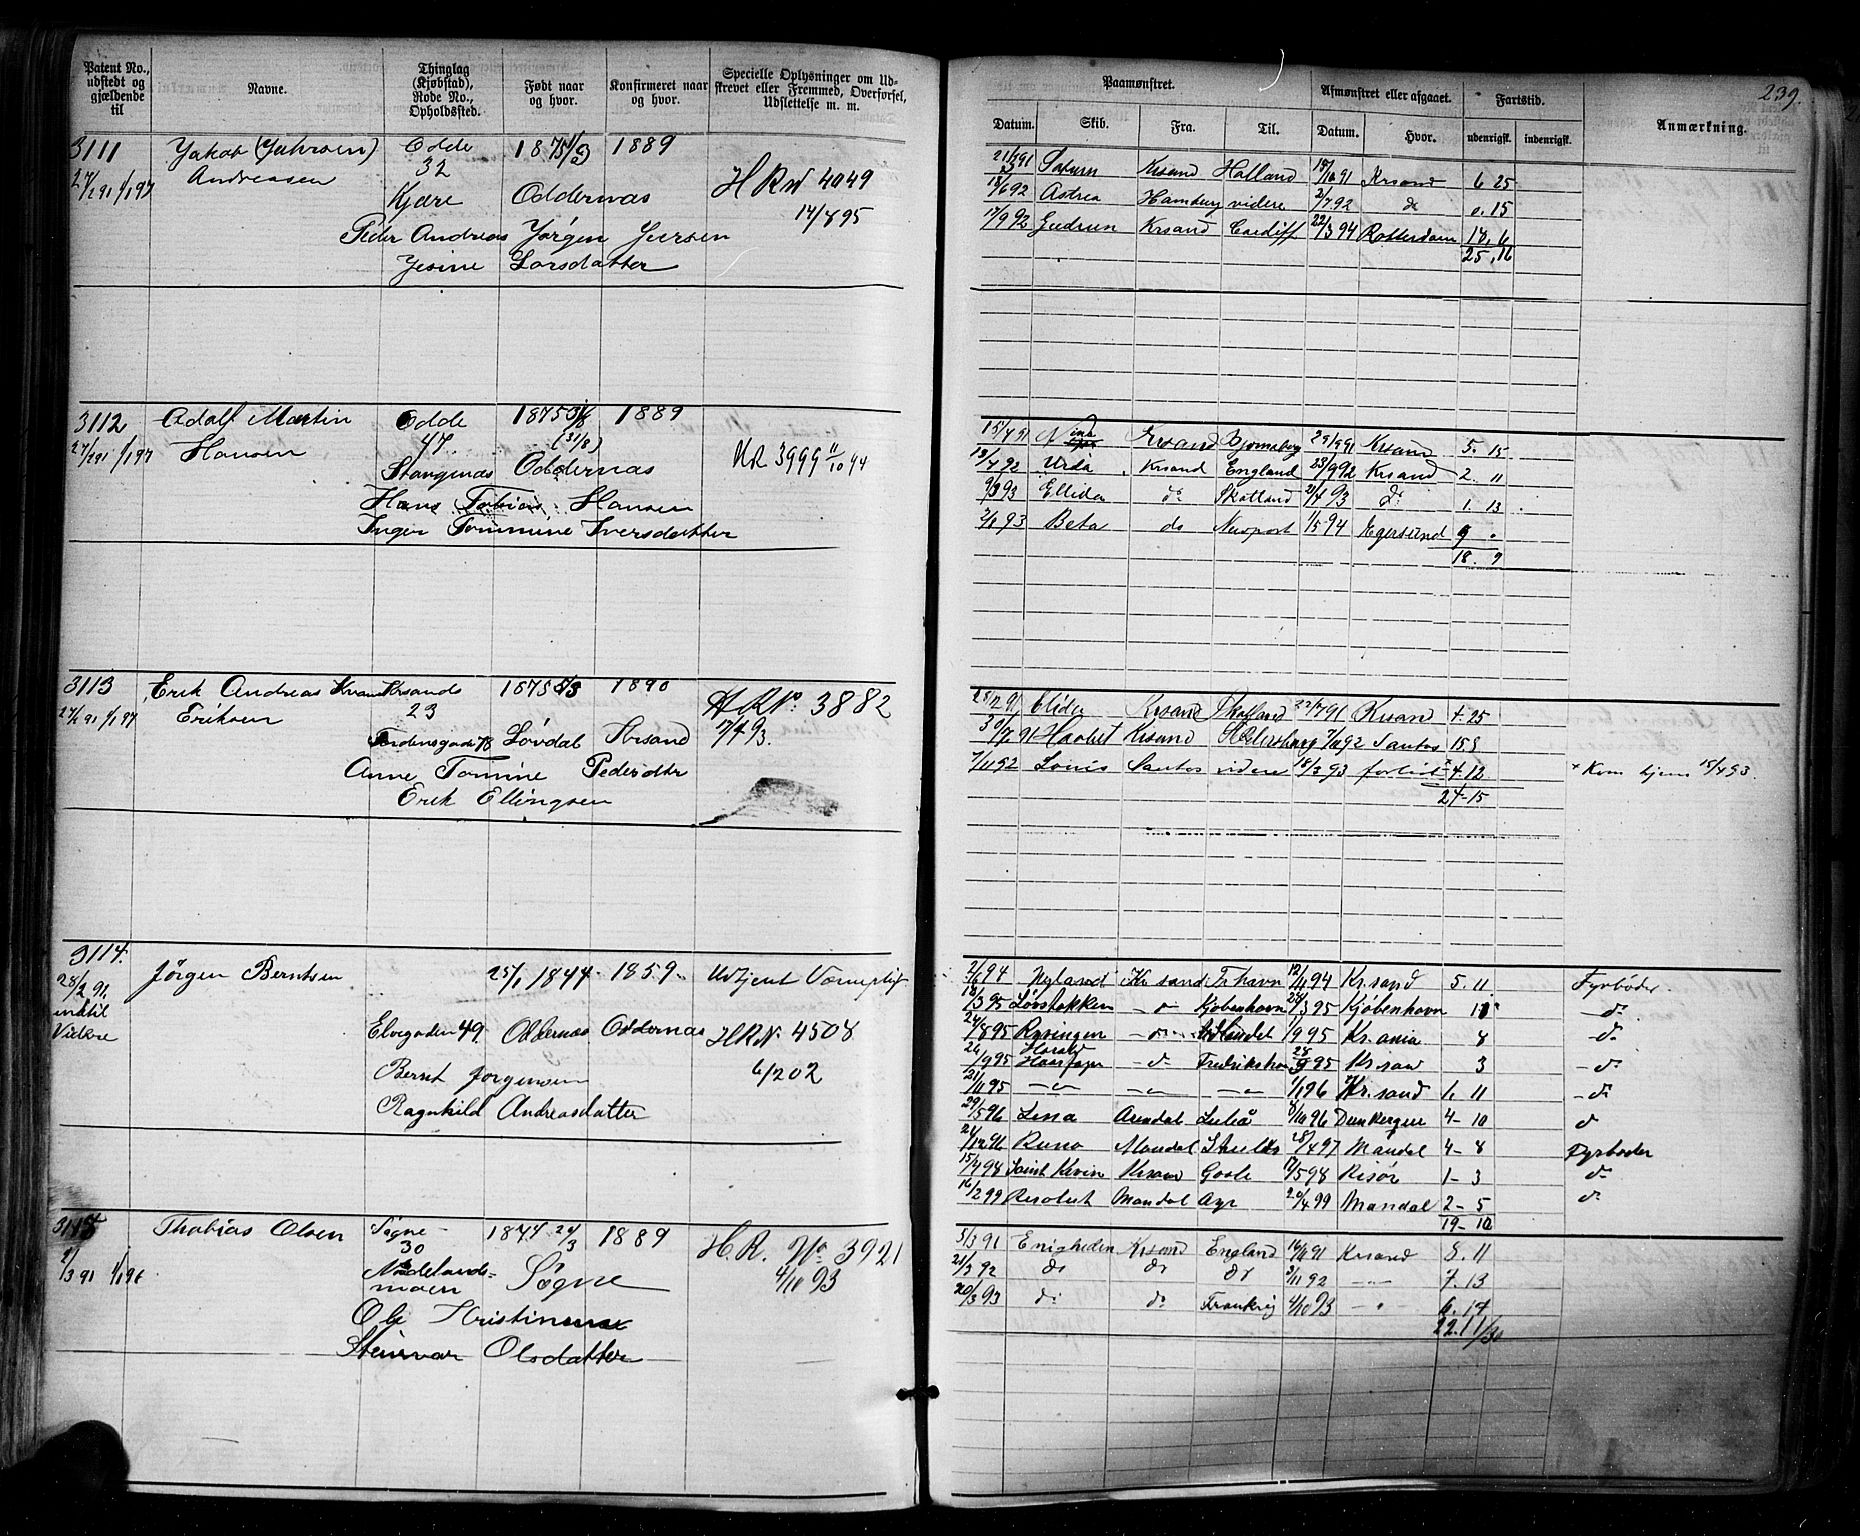 Patent No., udstedt og gjældende til
Navne.
Thinglag (Kjøbstad), Rode No., Opholdssted.
Født naar og hvor.
Konfirmeret naar og hvor.
Specielle Oplysninger om Udskrevet eller Fremmed, Overførsel, Udslettelse m. m.
3111 Jakob (Juhrsen) Odde 1875 1889
27/2 91 1/1 97 Andreasen 32 H R No 4049
Kjære Oddernæs 14/8 95
Peder Andreas Jørgen Jversen
Jesine Larsdatter
3112 Adolf Martin Odde 1875 1889
27/2 91 1/1 97 Hansen 47. (31/8) HR 3999 11/10 94
Stangenæs Oddernæs
Hans Tobias Hansen
Inger Tommine Iversdatter
3113 Erik Andreas Krsands 1875 1890 H R No. 3882
27/2 91 1/1 97 Eriksen 23 17/4 93.
Løvdal Krsand
Anne Tomine Pedersdtr
Erik Ellingsen
3114. Jørgen Berntsen 25/1 1844 1859 Udtjent Værnepligt
28/2 91 indtil Videre Elvegaden 49 Oddernæs Oddernæs H R No 4508
Bernt Jørgensen 6/2 02
Ragnhild Andreasdatter
3115 Thobias Olsen Søgne 1874 24/3 1889 H. R. No 3921
2/3 91 1/1 96 30 4/10 93
Nodelandsmoen Søgne
Ole Kristinnsse
Steinvar Olsdatter
239.
Paamønstret. Afmønstret eller afgaaet. Fartstid. Anmærkning.
Datum. Skib. Fra. Til. Datum. Hvor. udenrigsk. indenrigsk.
21/3 91 Saturn Krsand Holland 15/10 91 Krsand 6 25
18/6 92 Astrea Hamburg videre 2/7 92 do 0. 15
17/9 92 Gudrun Krsand Cardiff 22/3 94 Rotterdam 18. 6
25. 16
15/4 91 Nina Krsand Bjørneborg 29/9 91 Krsand 5. 15
13/7 92 Urda Krsand England 23/9 92 Krsand 2. 11
9/3 93 Ellida do Skotland 21/4 93 do 1. 13
2/8 93 Beta do Newport 1/5 94 Egersund 9 "
18. 9
28/2 91 Elida Krsand Skotland 22/7 91 Krsand 4. 25
30/7 91 Haabet Krsand St Petersburg 7/11 92 Santos 15 8
7/11 92 Louis Santos videre 18/3 93 forlist x 4. 12 x Kom hjem 15/4 93.
24-15
2/6 94 Nyland Kr sand Fr.havn 12/11 94 Kr.sand 5. 11 Fyrbøder
18/3 95 Løvstakken - " - Kjøbenhavn 28/3 95 Kjøbenhavn 11 - do -
24/8 95 Rysingen - do - 1/9 95 Kr.ania 8 - do
26/9 95 Harald Haarfager - do Frederikshavn 28/9 95 Kr.san 3 - do
21/11 95 - " - - " - - " - 1/1 96 Kr.sand 1. 11 - do
29/5 96 Lina Arendal Luleå 8/10 96 Dunkerque 4- 10 do
24/12 96 Runo Mandal Shields 28/4 97 Mandal 4- 8 Fyrbøder
15/4 98 Saint Kevin Krsan Goole 17/5 98 Risør 1- 3 do
16/2 99 Resolut Mandal Ayr 20/4 99 Mandal 2- 5 do
19- 10
5/3 91 Enigheden Krsand England 16/11 91 Krsand 8. 11
21/3 92 do do do 3/11 92 - " - 7. 13
20/3 93 do do Frankrig 4/10 93 - " - 6. 14
22. 11/30